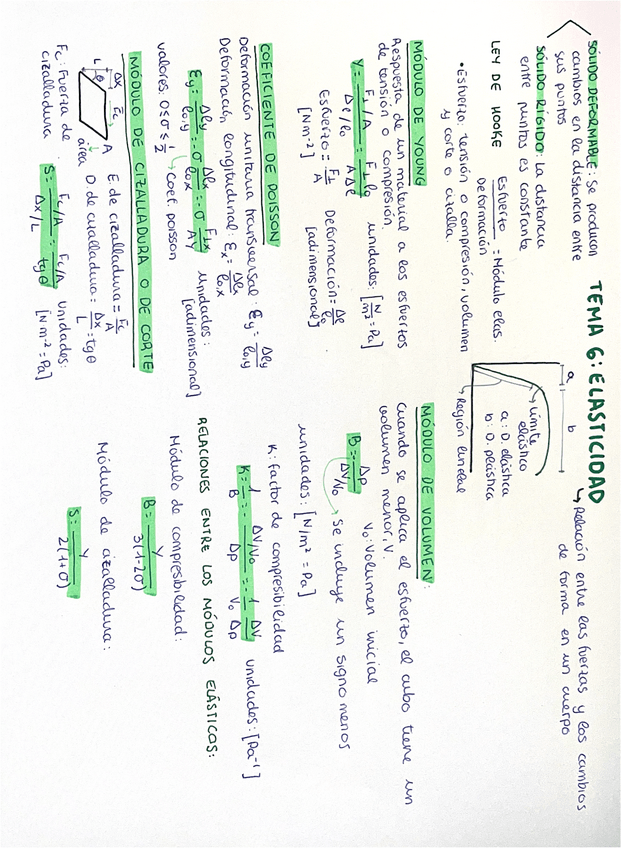 TEMA 6: ELASTICIDAD
↳ Relación entre las fuerzas y los cambios
de forma en un cuerpo
SÓLIDO DEFORMABLE: Se producen
cambios en la distancia entre
sus puntos
SÓLIDO RÍGIDO: La distancia
entre puntos es constante
LEY DE HOOKE
Esfuerzo / Deformación = Módulo elas.
• Esfuerzo: tensión o compresión, volumen
y corte o cizalla.
a
b
Límite
elástico
a: D. elástica
b: D. plástica
Región lineal
MÓDULO DE YOUNG
Respuesta de un material a los esfuerzos
de tensión o compresión
Y = (F⊥/A)/(Δl/l₀) = (F⊥ l₀)/(A Δl) unidades: [N/m² = Pa]
Esfuerzo = F⊥/A Deformación = Δl/l.
[N m⁻²] [adimensional]
COEFICIENTE DE POISSON
Deformación unitaria transversal: εy = Δly/l₀,y
Deformación longitudinal: εx = Δlx/l₀,x
εy = Δly/l₀,y = -σ Δlx/l₀,x = -σ F⊥x/AY unidades:
[adimensional]
valores: 0≤σ≤1/2 ↳ Coef. poisson
MÓDULO DE CIZALLADURA O DE CORTE
Δx Fc A
L θ
área
E. de cizalladura = Fc/A
D. de cizalladura = Δx/L = tgθ
Fc: Fuerza de
cizalladura
S = (Fc/A)/(Δx/L) = (Fc/A)/tgθ unidades:
[N m⁻² = Pa]
MÓDULO DE VOLUMEN:
Cuando se aplica el esfuerzo, el cubo tiene un
volumen menor, V.
B = -Δp/(ΔV/V₀) V₀: Volumen inicial
↳ se incluye un signo menos
unidades: [N/m² = Pa]
K: factor de compresibilidad
K = 1/B = -(ΔV/V₀)/Δp = -(1/V₀)(ΔV/Δp) unidades: [Pa⁻¹]
RELACIONES ENTRE LOS MÓDULOS ELÁSTICOS:
Módulo de compresibilidad:
B = Y/3(1-2σ)
Módulo de cizalladura:
S = Y/2(1+σ)